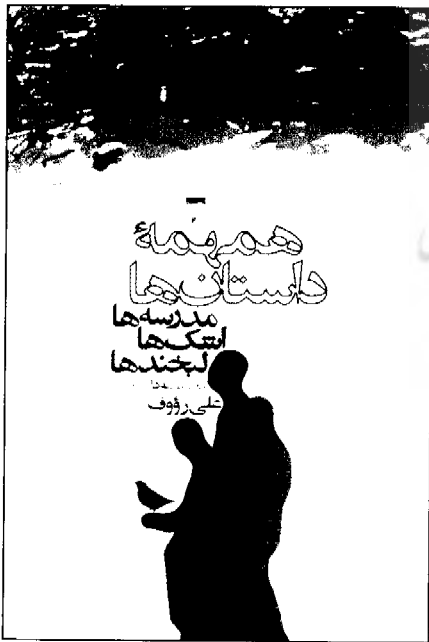 همهمهٔ
داستان‌ها
مدرسه‌ها
اشک‌ها
لبخندها
علی رؤوف